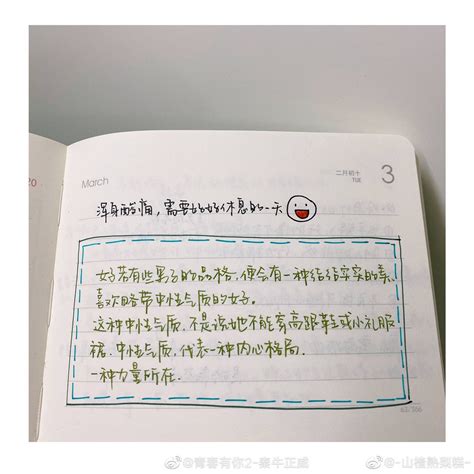 20
March
二月初十
TUE
3
浑身酸痛，需要好好休息的一天
女子若有些男子的品格，便会有一种结结实实的美，
喜欢略带中性气质的女子。
这种中性气质，不是说她不能穿高跟鞋或小礼服
裙，中性气质，代表一种内心格局.
一种力量所在.
63/366
@青春有你2-秦牛正威
@-山楂熟梨糕-